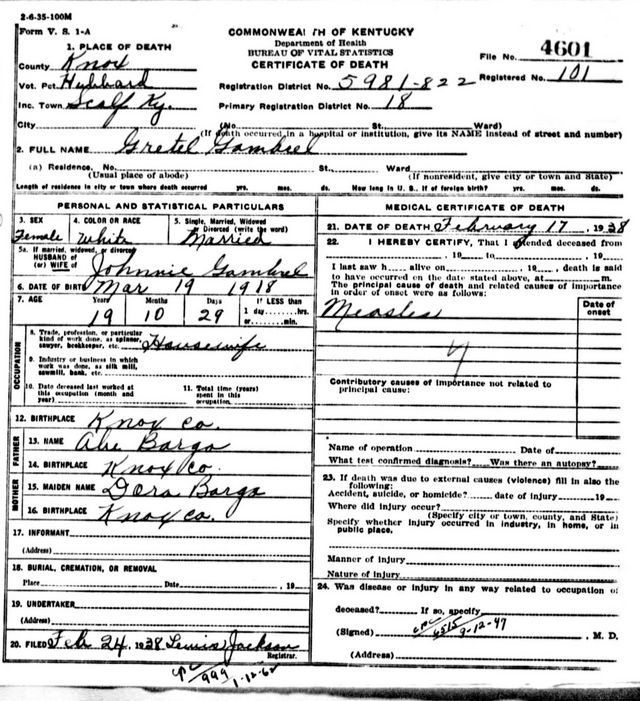 2-6-35-100M
Form V. S. 1-A
COMMONWEALTH OF KENTUCKY
Department of Health
BUREAU OF VITAL STATISTICS
CERTIFICATE OF DEATH
File No. 4601
Registered No. 101
1. PLACE OF DEATH
County Knox
Vot. Pct. Hubbard
Inc. Town Scalf Ky.
Registration District No. 5981-822
Primary Registration District No. 18
City (No. St. Ward)
(If death occurred in a hospital or institution, give its NAME instead of street and number)
2. FULL NAME Gretel Gambrel
(a) Residence. No. St., Ward
(Usual place of abode) (If nonresident, give city or town and State)
Length of residence in city or town where death occurred yrs. mos. ds. How long in U. S., if of foreign birth? yrs. mos. ds.
PERSONAL AND STATISTICAL PARTICULARS
3. SEX Female
4. COLOR OR RACE White
5. Single, Married, Widowed or Divorced (write the word) Married
5a. If married, widowed, or divorced
HUSBAND of
(or) WIFE of Johnnie Gambrel
6. DATE OF BIRTH Mar 19 1918
7. AGE Years Months Days If LESS than
19 10 29 1 day hrs.
or min.
OCCUPATION
8. Trade, profession, or particular kind of work done, as spinner, sawyer, bookkeeper, etc. Housewife
9. Industry or business in which work was done, as silk mill, sawmill, bank, etc.
10. Date deceased last worked at this occupation (month and year)
11. Total time (years) spent in this occupation
12. BIRTHPLACE Knox Co
FATHER
13. NAME Abe Bargo
14. BIRTHPLACE Knox Co.
MOTHER
15. MAIDEN NAME Dora Bargo
16. BIRTHPLACE Knox Co.
17. INFORMANT
(Address)
18. BURIAL, CREMATION, OR REMOVAL
Place Date , 19
19. UNDERTAKER
(Address)
20. FILED Feb 24, 1938 Lewis Jackson
Registrar.
999 1-12-62
MEDICAL CERTIFICATE OF DEATH
21. DATE OF DEATH February 17, 1938
22. I HEREBY CERTIFY, That I attended deceased from
, 19 to , 19
I last saw h alive on , 19 , death is said
to have occurred on the date stated above, at m.
The principal cause of death and related causes of importance
in order of onset were as follows:
Date of onset
Measles
Contributory causes of importance not related to
principal cause:
Name of operation Date of
What test confirmed diagnosis? Was there an autopsy?
23. If death was due to external causes (violence) fill in also the
following:
Accident, suicide, or homicide? date of injury 19
Where did injury occur?
(Specify city or town, county, and State)
Specify whether injury occurred in industry, in home, or in
public place.
Manner of injury
Nature of injury
24. Was disease or injury in any way related to occupation of
deceased? If so, specify
(Signed) , M. D.
6515 9-12-47
(Address)